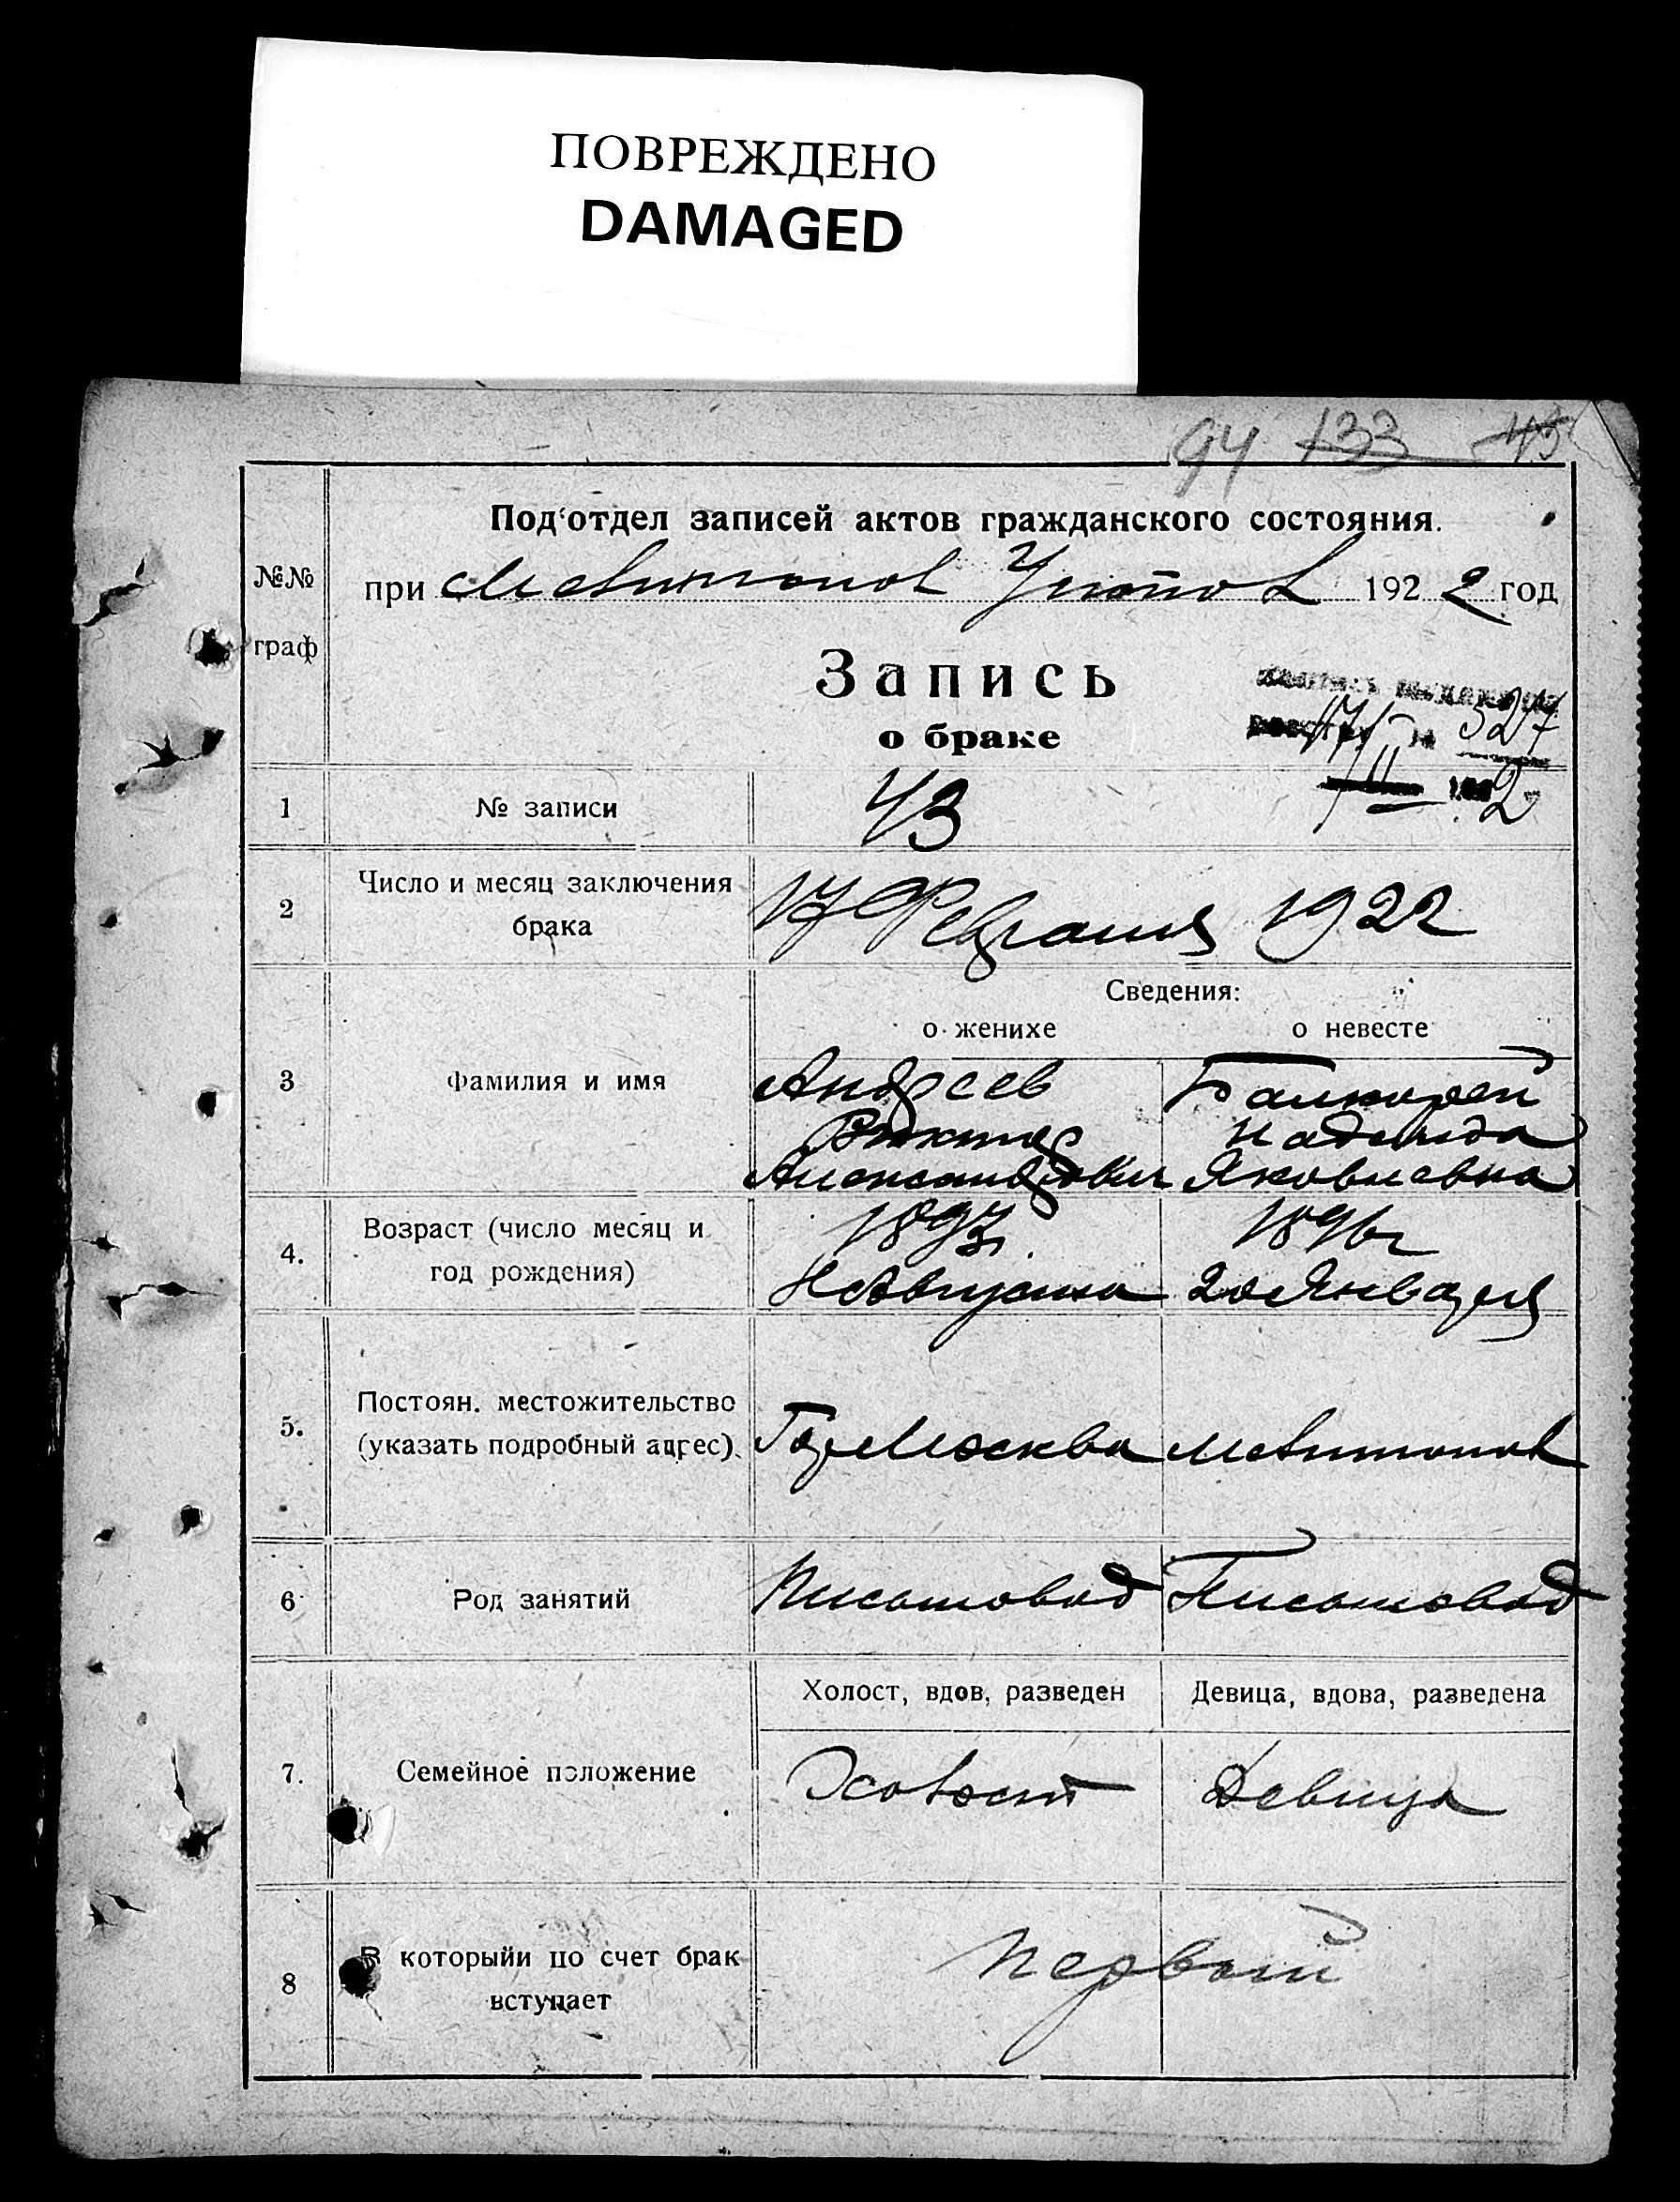 ПОВРЕЖДЕНО
DAMAGED
94 133 43
Под'отдел записей актов гражданского состояния.
№№ граф
при Мелитопол 1922 год
Запись
о браке
527
17/II 1922
1 № записи 43
2 Число и месяц заключения брака 17 Февраля 1922
Сведения:
о женихе о невесте
3 Фамилия и имя
Андреев
Виктор
Александрович
Надежда
Яковлевна
4. Возраст (число месяц и год рождения)
1897г. 1896г
Августа 20 Января
5. Постоян. местожительство (указать подробный адрес).
Гор Москва Мелитопол
6 Род занятий
Письмовод Письмовод
Холост, вдов, разведен Девица, вдова, разведена
7. Семейное положение
Холост Девица
8 В которыйи по счет брак вступает
первый